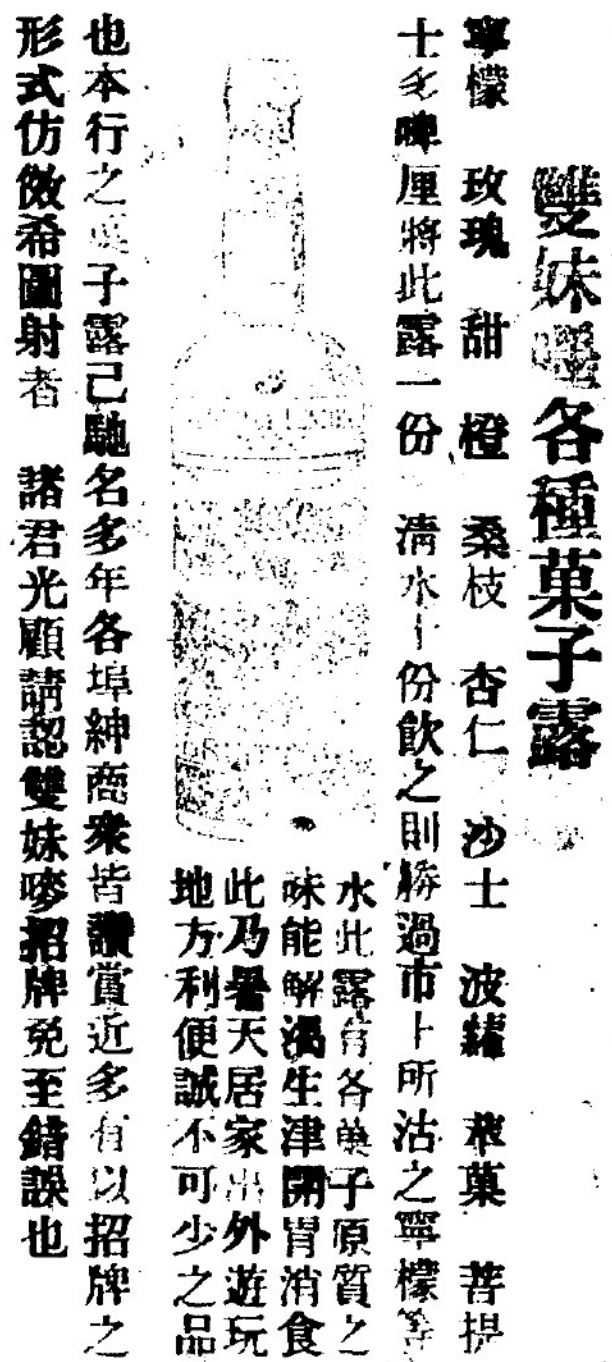 雙妹嘜各種菓子露
寧檬 玫瑰 甜橙 桑枝 杏仁 沙士 波蘿 苹菓 菩提
士多啤厘將此露一份 清水十份飲之則勝過市上所沽之寧檬等
水此露有各菓子原質之
味能解渴生津開胃消食
此乃暑天居家出外遊玩
地方利便誠不可少之品
也本行之菓子露己馳名多年各埠紳商衆皆讚賞近多有以招牌之
形式仿傚希圖射者 諸君光顧請認雙妹嘜招牌免至錯誤也